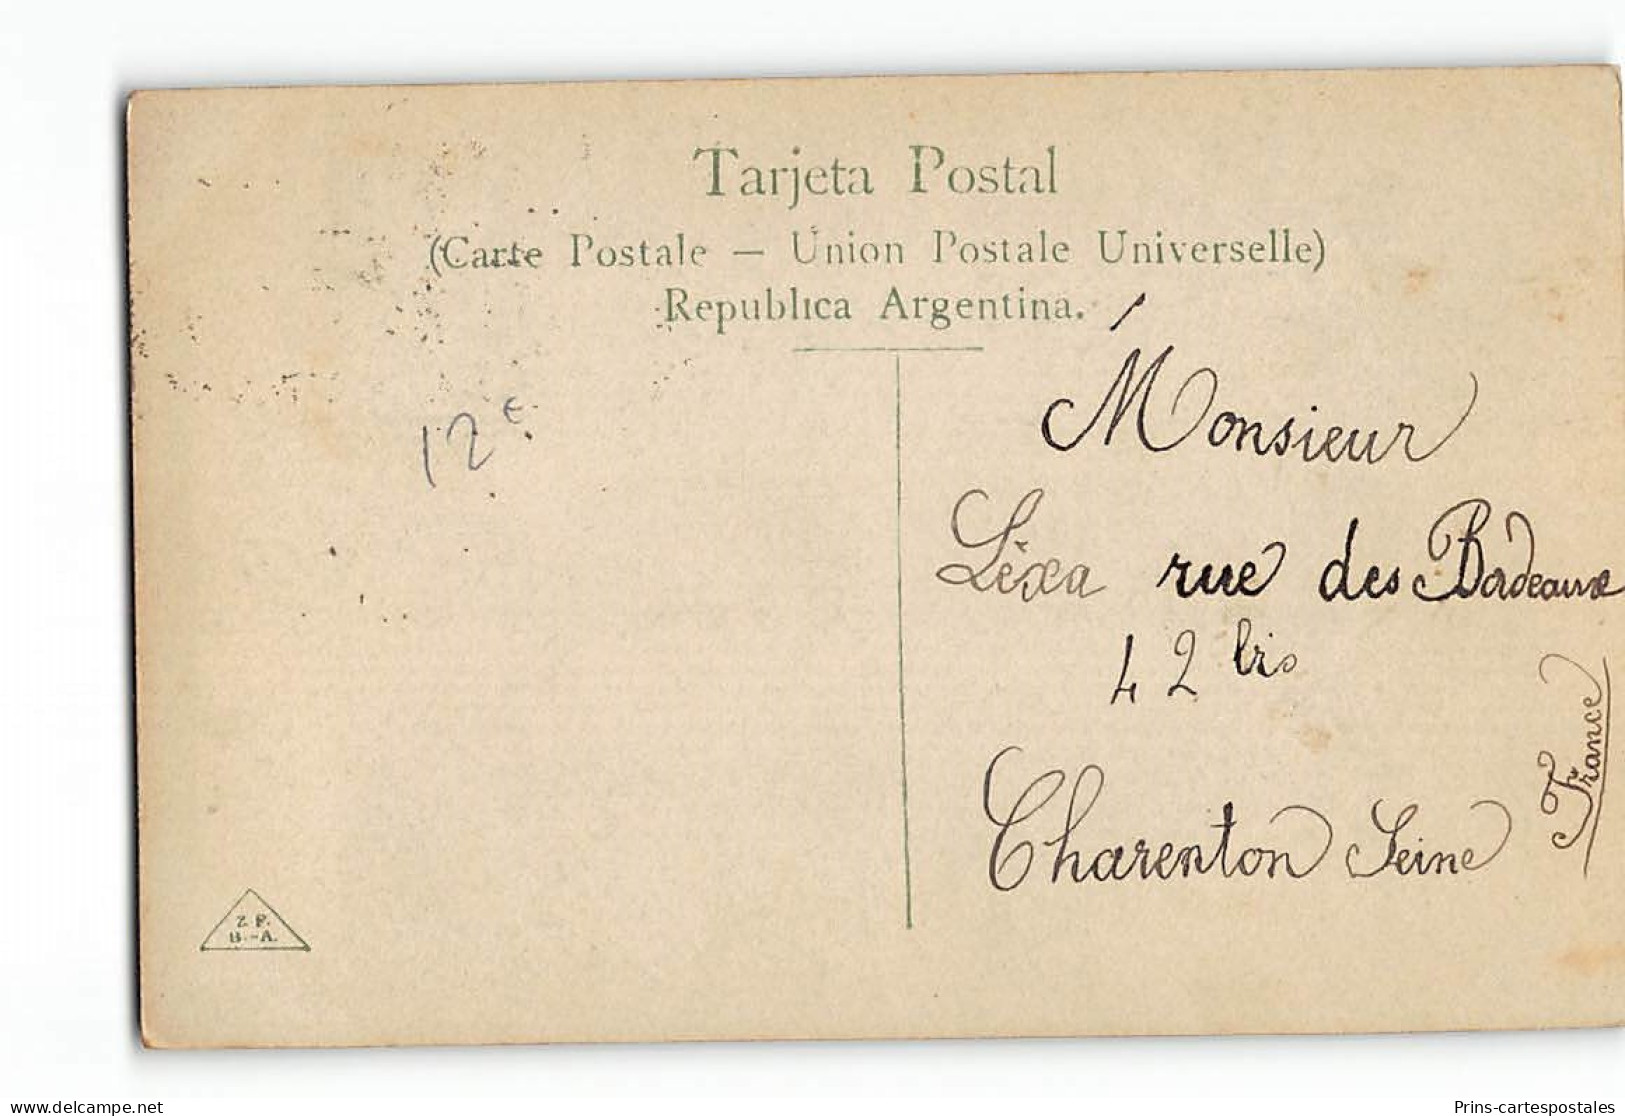 Tarjeta Postal
(Carte Postale — Union Postale Universelle)
Republica Argentina.
12€
Monsieur
Léxa rue des Bordeaux
42 bis
Charenton Seine
France
Z. P.
B.-A.
www.delcampe.net
Prins-cartespostales